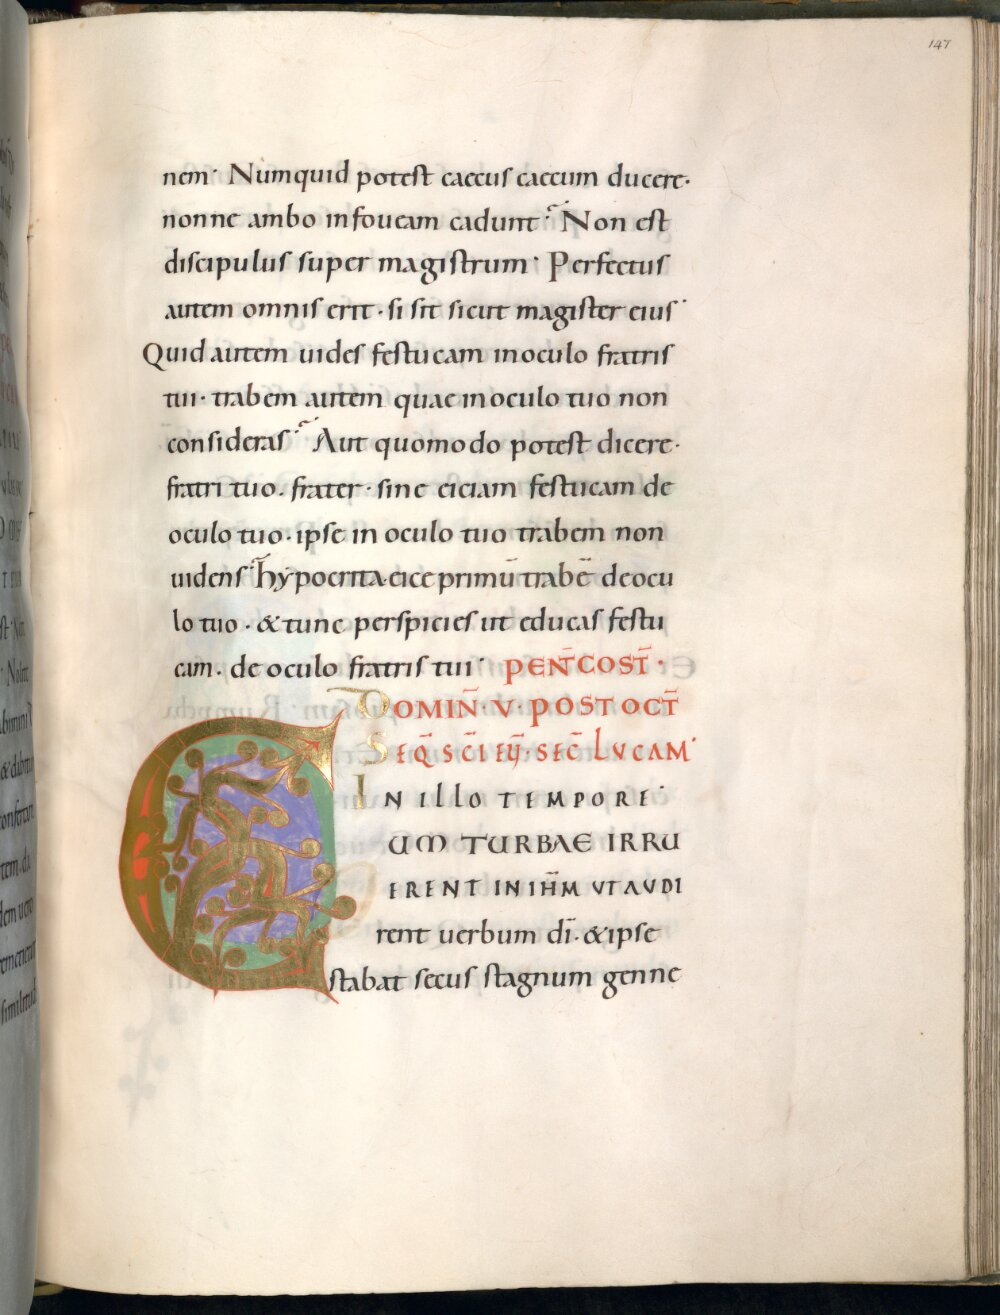 147
nem· Numquid potest caecus caecum ducere·
nonne ambo infoueam cadunt? Non est
discipulus super magistrum· Perfectus
autem omnis erit· si sit sicut magister eius·
Quid autem uides festucam inoculo fratris
tui· trabem autem quae inoculo tuo non
consideras? Aut quomodo potest dicere·
fratri tuo· frater· sine eiciam festucam de
oculo tuo· ipse in oculo tuo trabem non
uidens? hypocrita· eice primū trabē deocu
lo tuo· &tunc perspicies ut educas festu
cam· de oculo fratris tui· PENT̄COST̄·
DOMIN̄·V·POST OCT̄
SEQ̄ SC̄I EṼ·SEC̄ LVCAM·
IN ILLO TEMPORE·
CUM TURBAE IRRU
ERENT IN IH̄M VT AVDI
rent uerbum dī· &ipse
stabat secus stagnum genne